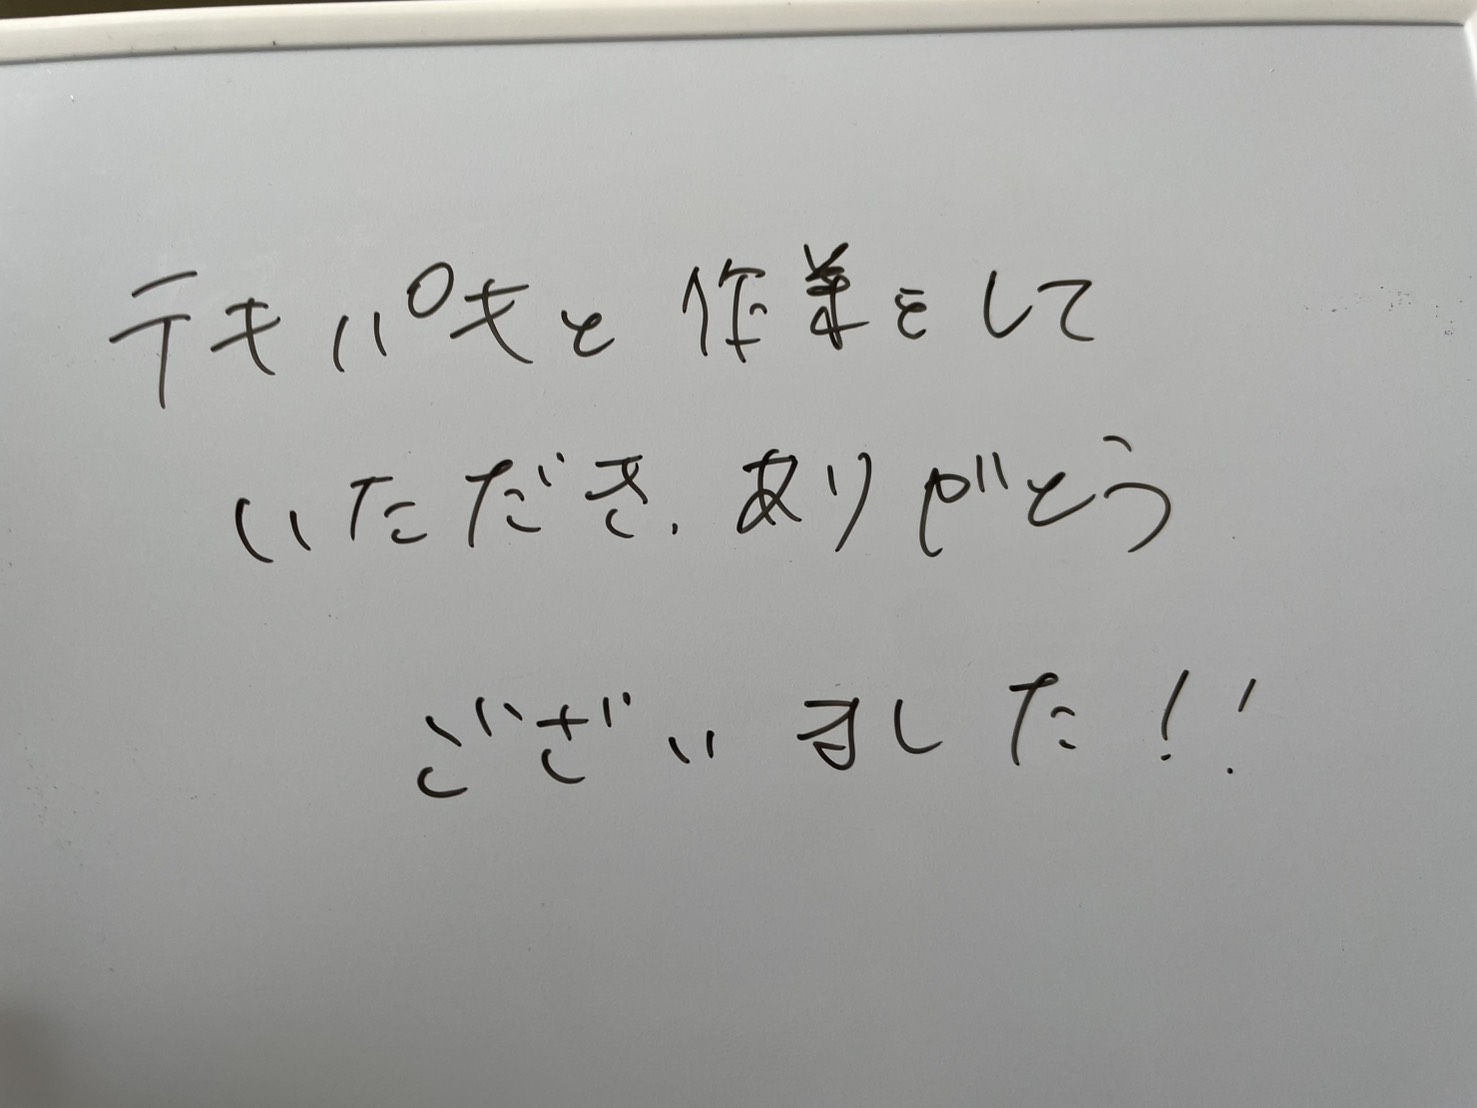 テキパキと作業をして
いただき、ありがとう
ございました!!